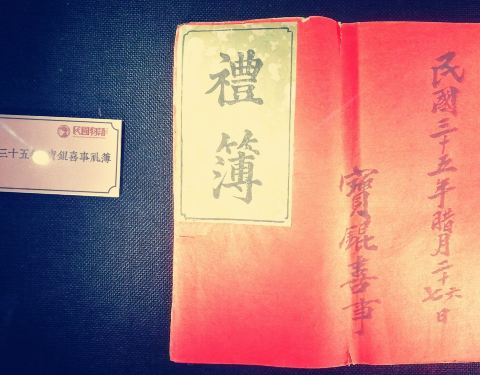 民國物語
三十五 寶錕喜事礼簿
禮簿
民國三十五年腊月二十六七日
寶錕喜事